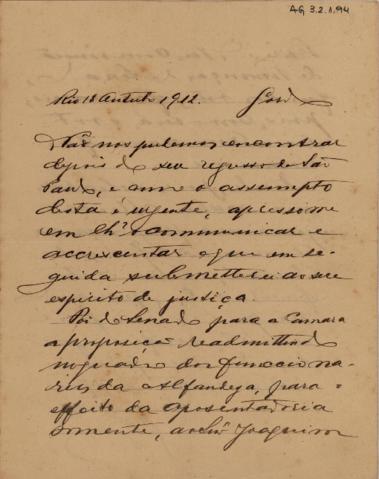 AG 3.2.1.94
Rio 18 Outubro 1912.
Não nos pudemos encontrar
depois do seu regresso de São
Paulo, e como o assumpto
desta é urgente, apresso-me
em lh'o communicar e
accrescentar o que em se-
guida submetterei ao seu
espirito de justiça.
Foi do Senado para a Camara
a proposição readmittindo
no quadro dos funcciona-
rios da Alfandega, para o
effeito da aposentadoria
somente, Joaquim